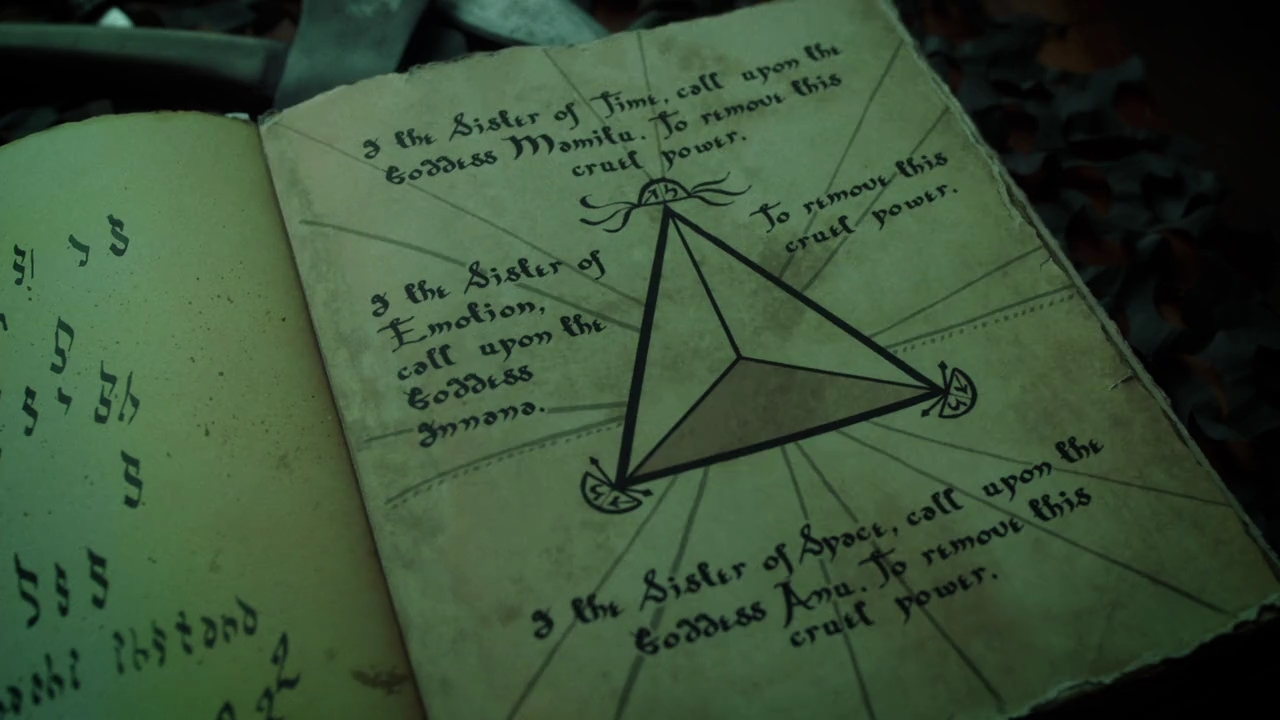 I the Sister of Time, call upon the
Goddess Mamitu. To remove this
cruel power.
To remove this
cruel power.
I the Sister of
Emotion,
call upon the
Goddess
Innana.
I the Sister of Space, call upon the
Goddess Anu. To remove this
cruel power.